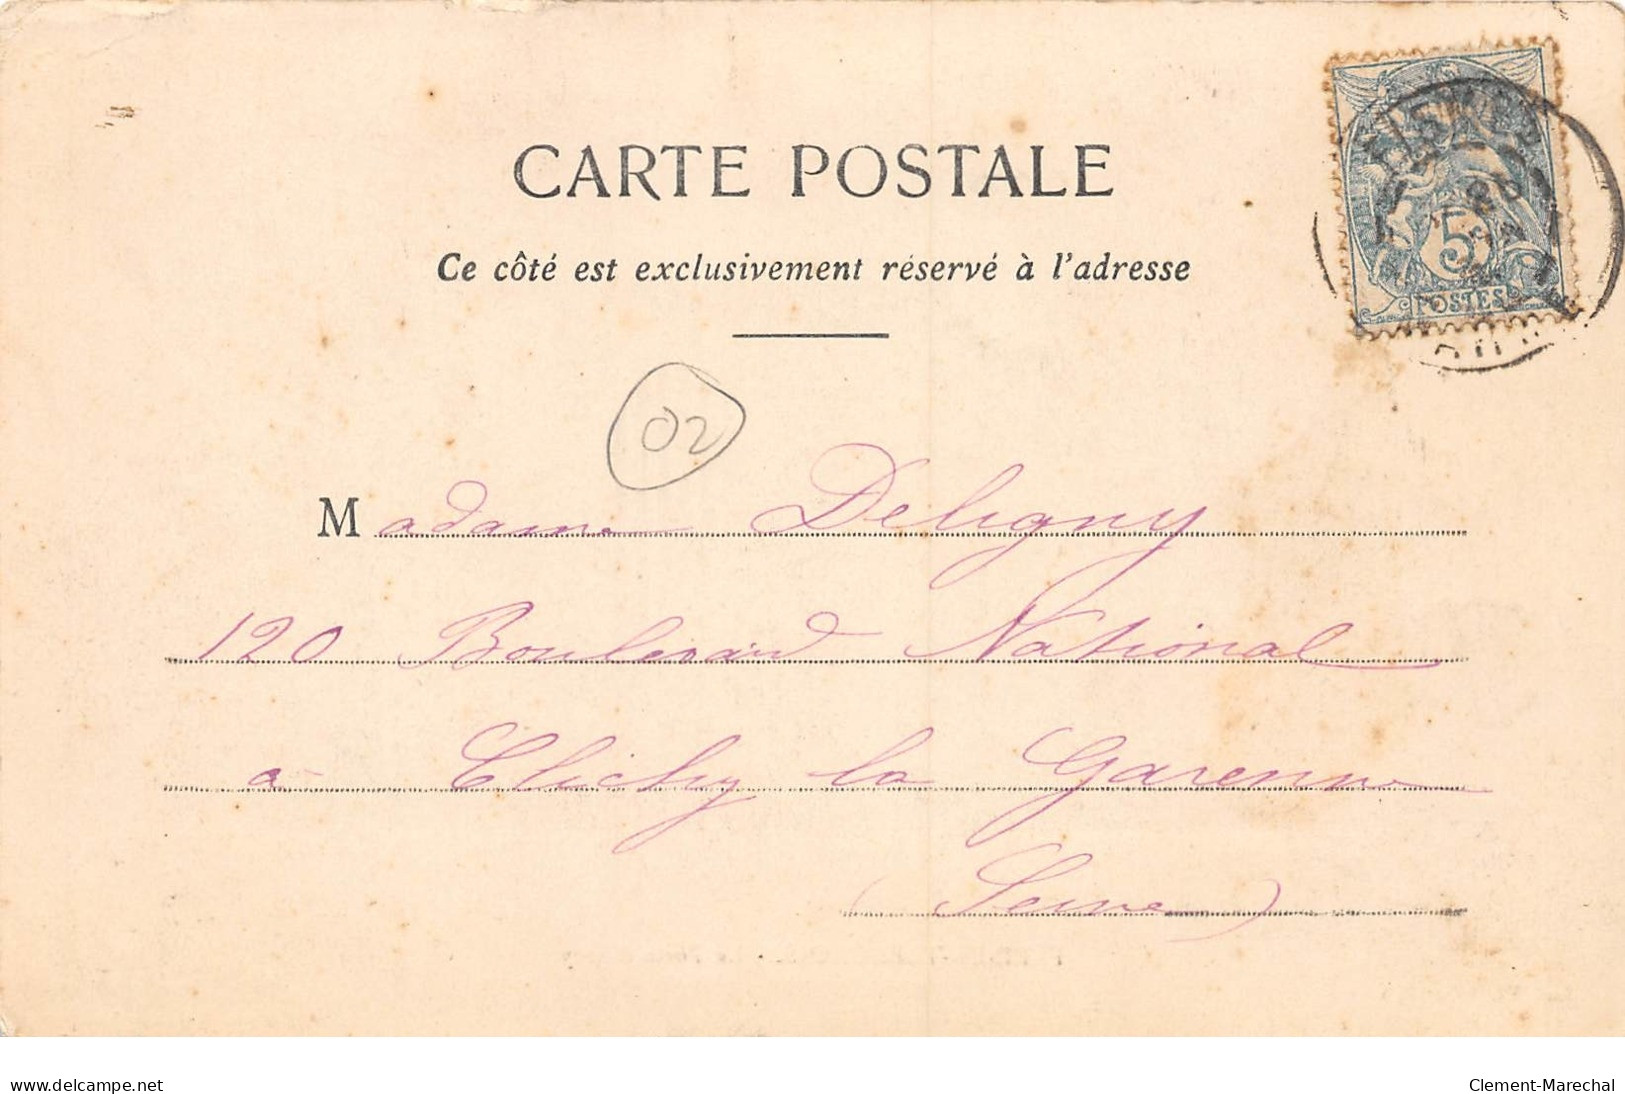 CARTE POSTALE
Ce côté est exclusivement réservé à l'adresse
5
POSTES
02
Madame Deligny
120 Boulevard National
à Clichy la Garenne
(Seine)
www.delcampe.net
Clement-Marechal